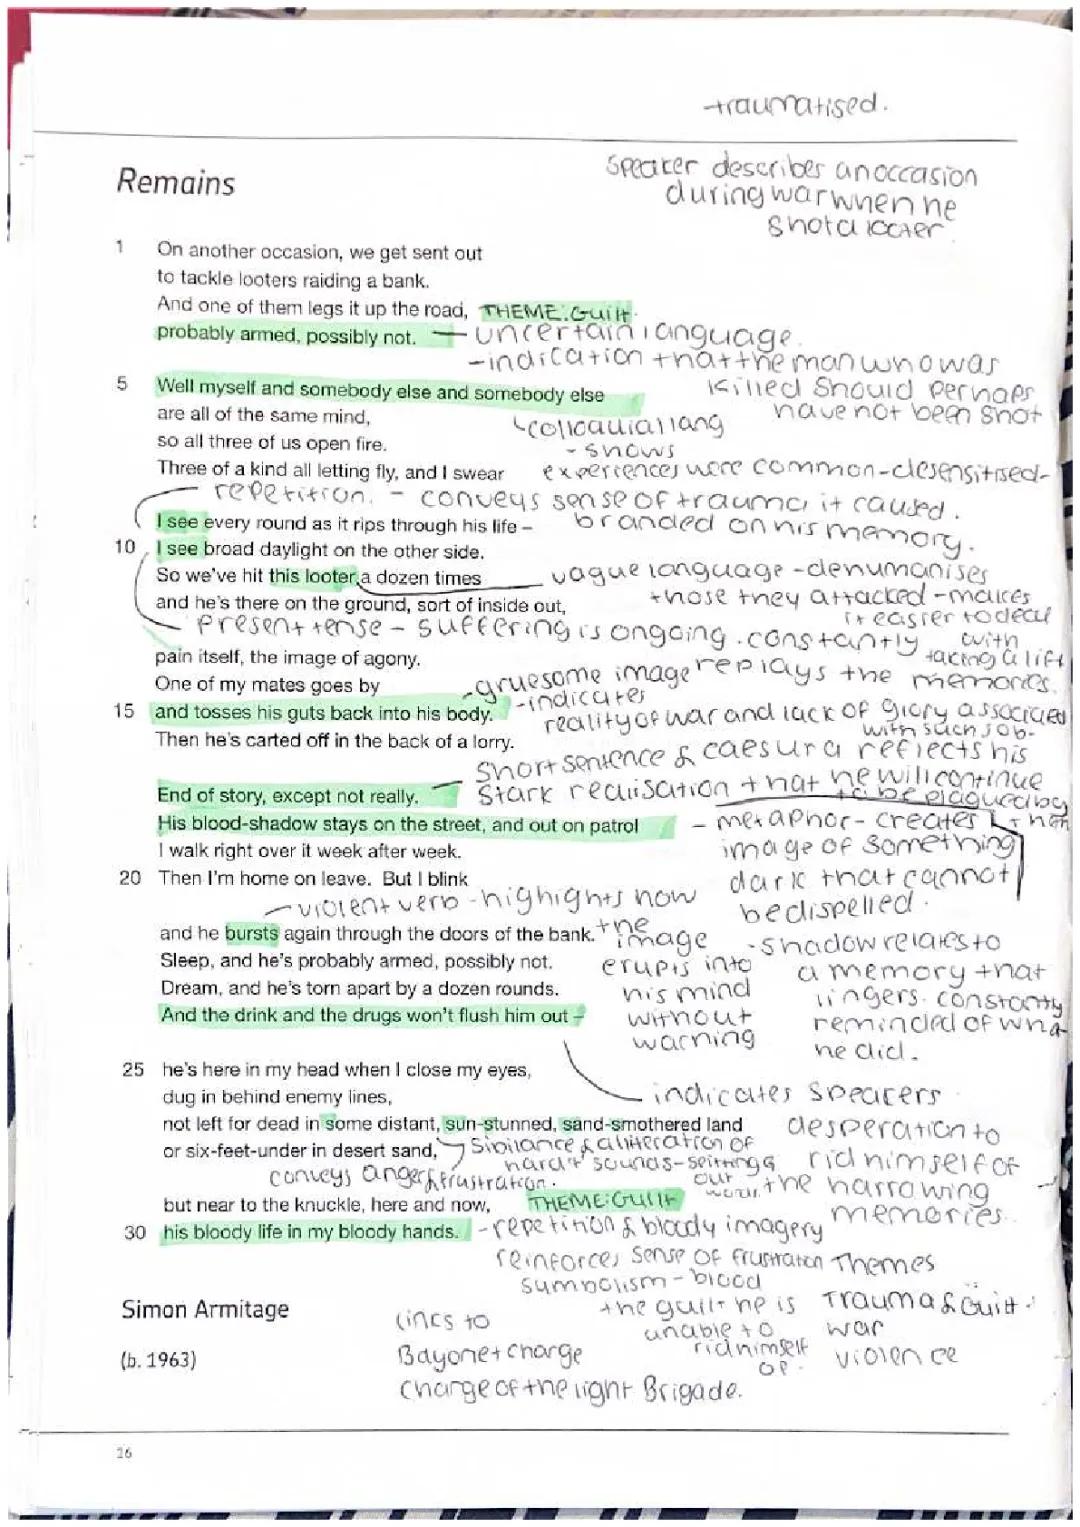 traumatised.
Remains
Speaker describes an occasion
during war when he
shot a looter.
1 On another occasion, we get sent out
to tackle looters raiding a bank.
And one of them legs it up the road, THEME: Guilt
probably armed, possibly not. — uncertain language.
- indication that the man who was
killed should perhaps
have not been shot
5 Well myself and somebody else and somebody else
are all of the same mind,
so all three of us open fire.
Three of a kind all letting fly, and I swear
colloquial lang
- shows
experiences were common - desensitised -
repetition. - conveys sense of trauma it caused.
branded on his memory.
I see every round as it rips through his life –
10 I see broad daylight on the other side.
So we've hit this looter a dozen times
and he's there on the ground, sort of inside out,
vague language - dehumanises
those they attacked - makes
it easier to deal
with
taking a life
present tense - suffering is ongoing. constantly
replays the memories.
pain itself, the image of agony.
One of my mates goes by
15 and tosses his guts back into his body.
Then he's carted off in the back of a lorry.
- gruesome image
- indicates
reality of war and lack of glory associated
with such job.
short sentence & caesura reflects his
stark realisation that he will continue
to be plagued by
End of story, except not really.
His blood-shadow stays on the street, and out on patrol
I walk right over it week after week.
20 Then I'm home on leave. But I blink
- metaphor - creates
image of something
dark that cannot
be dispelled.
- violent verb - highlights how
the image
erupts into
his mind
without
warning
and he bursts again through the doors of the bank.
Sleep, and he's probably armed, possibly not.
Dream, and he's torn apart by a dozen rounds.
And the drink and the drugs won't flush him out –
- shadow relates to
a memory that
lingers. constantly
reminded of wha
he did.
25 he's here in my head when I close my eyes,
dug in behind enemy lines,
not left for dead in some distant, sun-stunned, sand-smothered land
or six-feet-under in desert sand,
indicates speakers
desperation to
rid himself of
the harrowing
memories.
sibilance & alliteration of
hard 't' sounds - spitting
out words.
conveys anger & frustration.
but near to the knuckle, here and now, THEME: Guilt
30 his bloody life in my bloody hands.
- repetition & bloody imagery
reinforces sense of frustration
symbolism - blood
the guilt he is
unable to
rid himself
of.
Themes
Trauma & Guilt
war
violence
Simon Armitage
(b. 1963)
links to
Bayonet charge
Charge of the light Brigade.
26